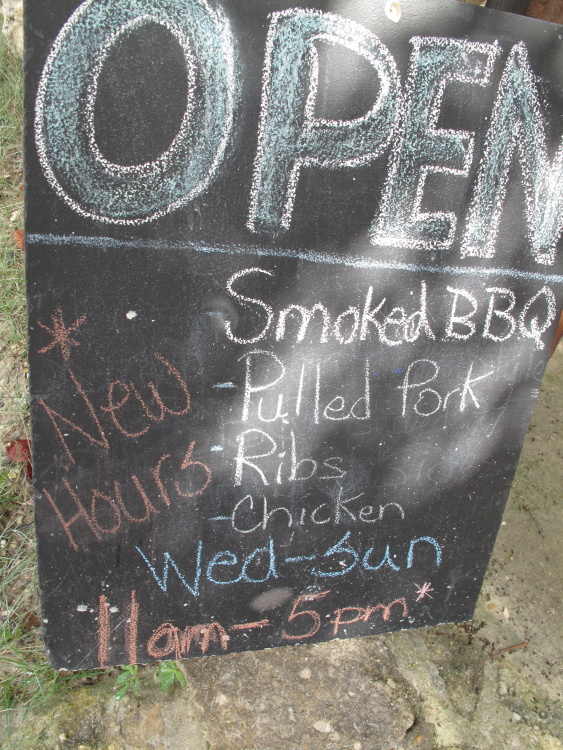 OPEN
Smoked BBQ
*New Hours
- Pulled Pork
- Ribs
- Chicken
Wed-Sun
11am-5pm*